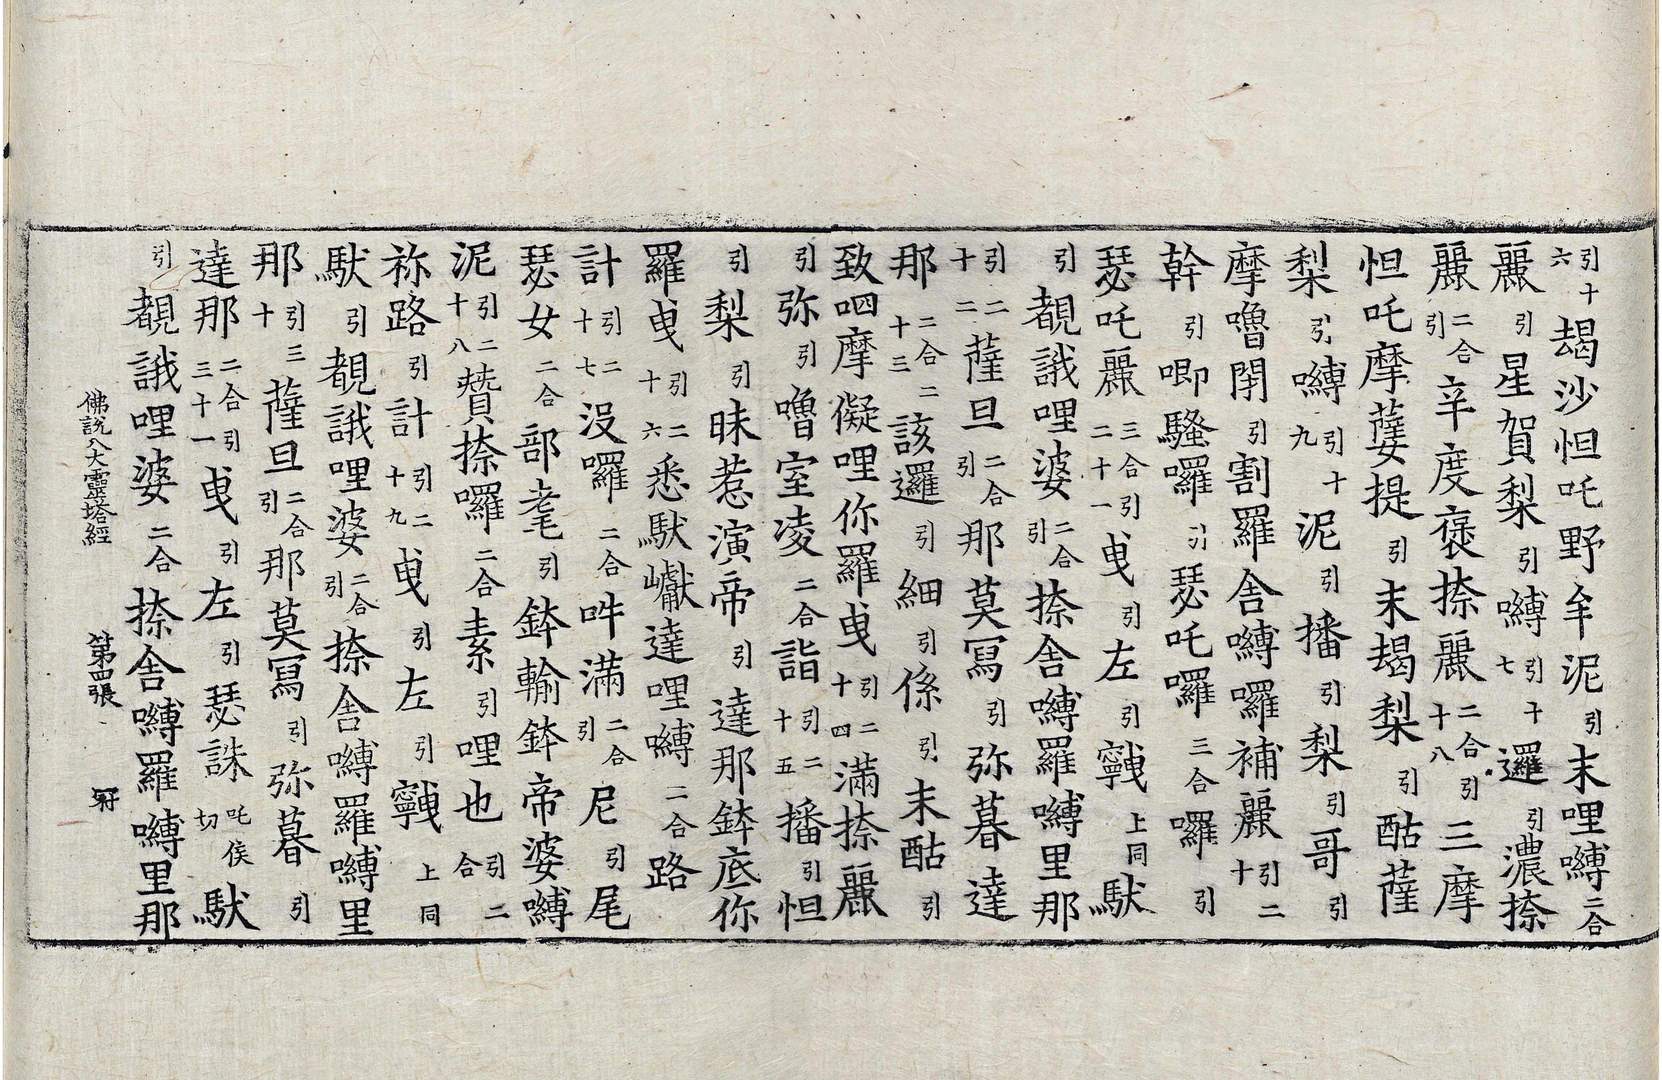 引十六朅沙怛吒野牟泥引末哩嚩二合
麗引星賀梨引嚩引十七邏引濃捺
麗二合引辛度褒捺麗二合引十八三摩
怛吒摩薩提引末朅梨引酤薩
梨引嚩引十九泥引播引梨引哥引
摩嚕閉引割羅舍嚩囉補麗引二十
幹引唧騷囉引瑟吒囉三合囉引
瑟吒麗三合引二十一曳引左引𩖅上同馱
引覩誐哩婆二合引捺舍嚩羅嚩里那
引二十二薩旦二合引那莫寫引弥暮達
那二合二十三該邏引細引係引末酤引
致呬摩儗哩你羅曳引二十四滿捺麗
引弥引嚕室凌二合詣引二十五播引怛
引梨引昧惹演帝引達那鉢底你
羅曳引二十六悉馱巘達哩嚩二合路
計引二十七没囉二合吽滿二合引尼引尾
瑟女二合部耄引鉢輸鉢帝婆嚩
泥引二十八贊捺囉二合素引哩也引二合
祢路引計引二十九曳引左引𩖅上同
馱引覩誐哩婆二合引捺舍嚩羅嚩里
那引三十薩旦二合引那莫寫引弥暮引
達那二合引三十一曳引左引瑟誅吒侯切馱
引覩誐哩婆二合捺舍嚩羅嚩里那
佛說八大靈塔經　第四張　冠